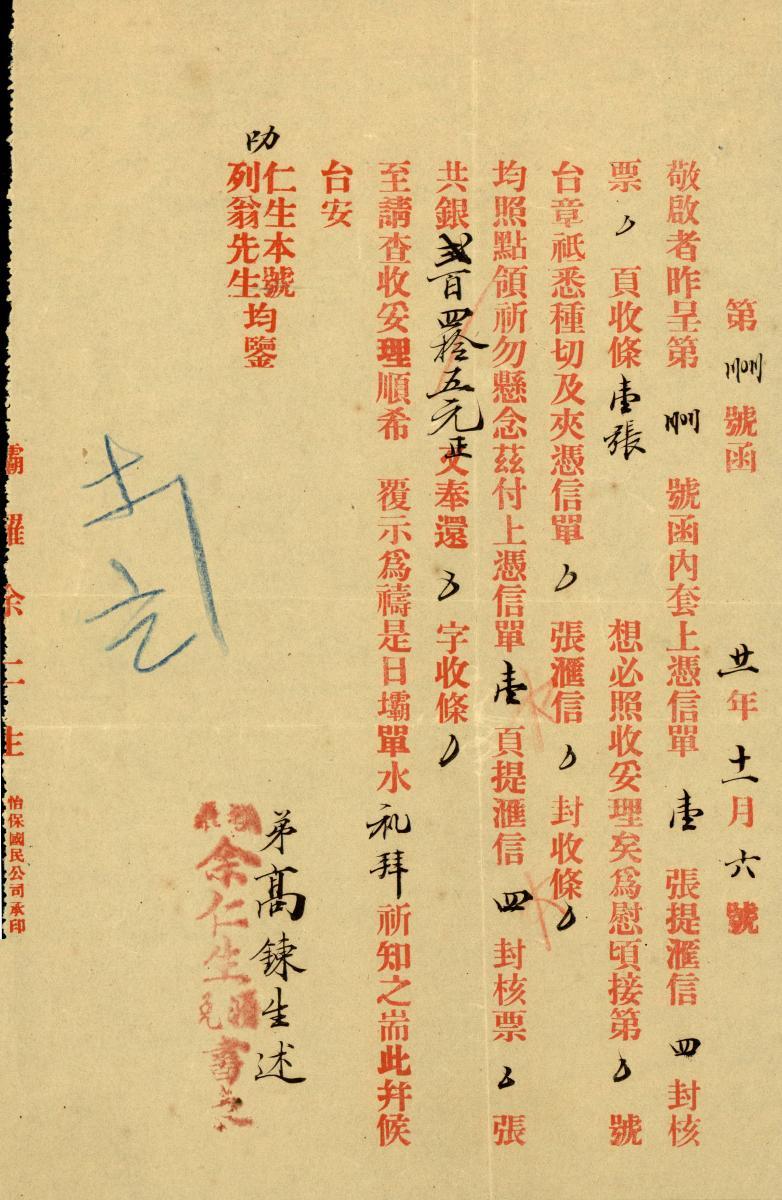 第 號函 廿年十一月六號
敬啟者昨呈第 號函內套上憑信單壹張提滙信四封核
票 頁收條壹張 想必照收妥理矣為慰頃接第 號
台章祇悉種切及夾憑信單 張滙信 封收條
均照點領祈勿懸念茲付上憑信單壹頁提滙信四封核票 張
共銀弍百四拾五元正交奉還 字收條
至請查收妥理順希 覆示為禱是日壩單水礼拜祈知之耑此并候
台安
叻仁生本號
列翁先生均鑒
弟高鍊生述
余仁生
壩羅余仁生
怡保國民公司承印